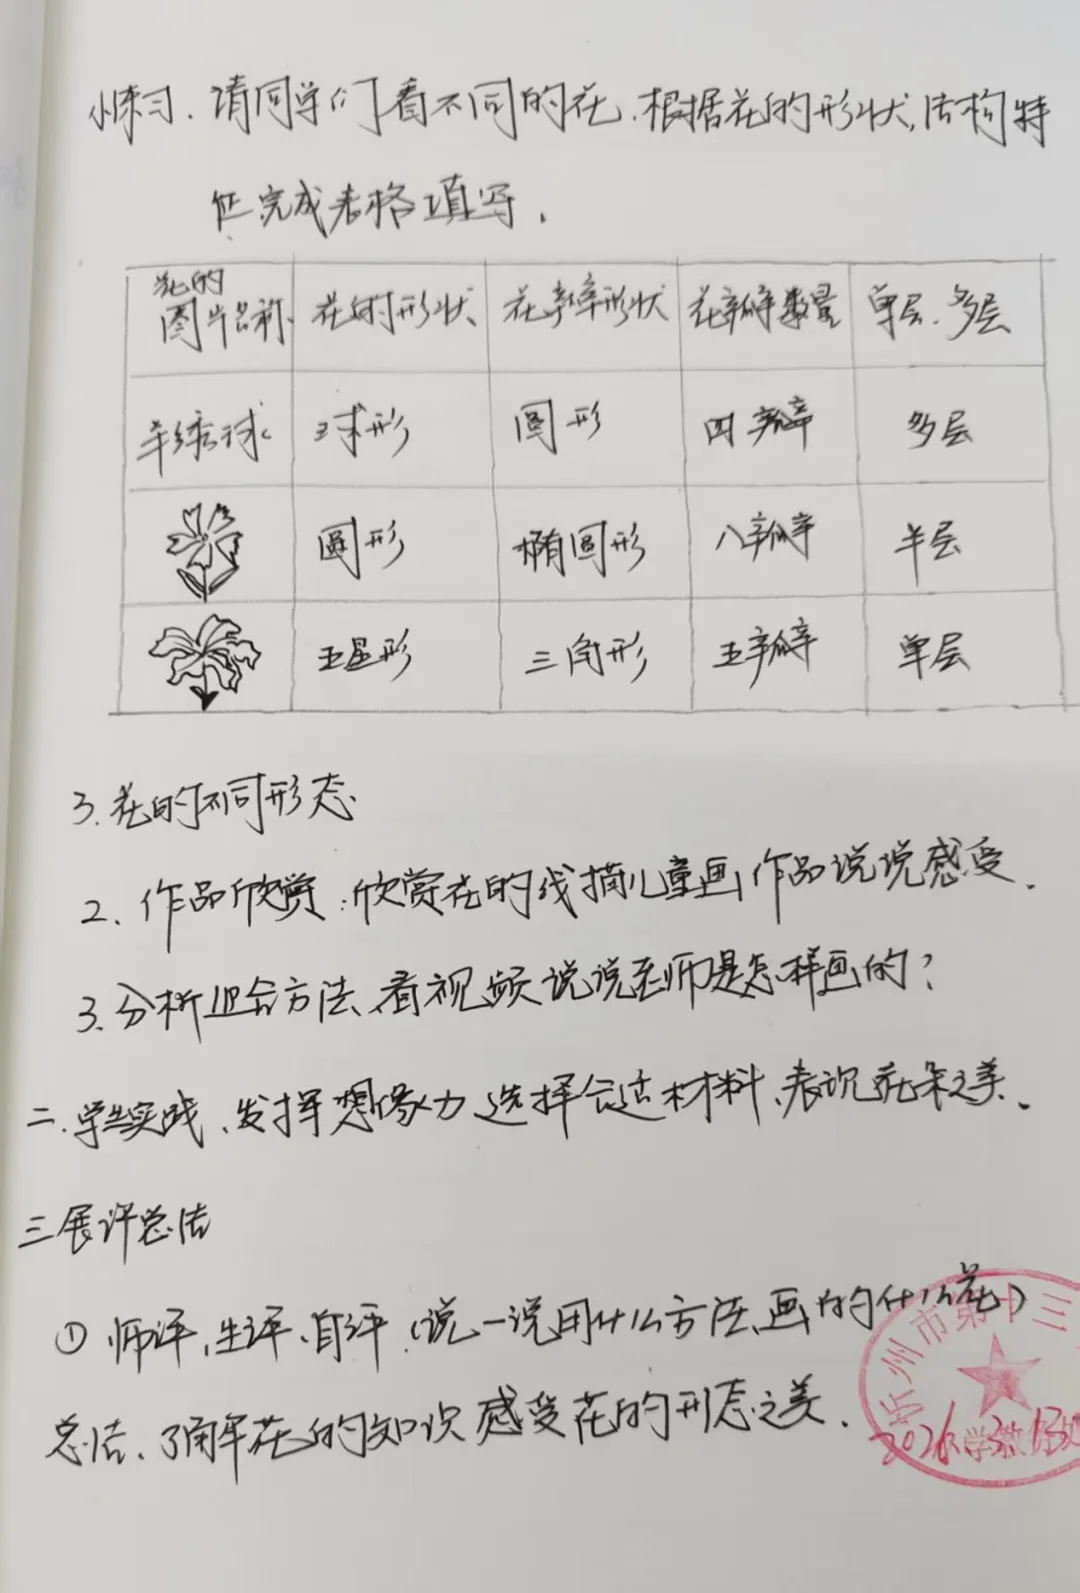 小练习. 请同学们看不同的花.根据花的形状,结构特
征完成表格填写.
花的图片名称 花的形状 花瓣形状 花瓣数量 单层.多层
羊绣球 球形 圆形 四瓣 多层
圆形 椭圆形 八瓣 半层
五星形 三角形 五瓣 单层
3.花的不同形态
2、作品欣赏:欣赏花的线描儿童画作品说说感受.
3.分析组合方法、看视频说说老师是怎样画的?
二.学生实践、发挥想像力选择合适材料、表现花朵之美.
三展评总结
①师评,生评、自评.(说一说用什么方法、画的什么花)
总结、了解花的知识感受花的形态之美.
忻州市第十三
2026.3.13